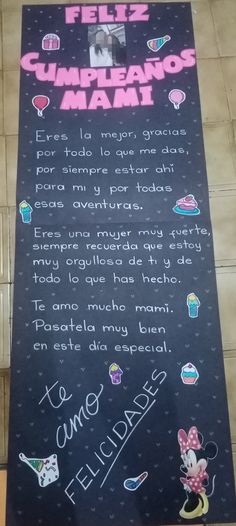 FELIZ
CUMPLEAÑOS
MAMI
Eres la mejor, gracias
por todo lo que me das,
por siempre estar ahí
para mi y por todas
esas aventuras.
Eres una mujer muy fuerte,
siempre recuerda que estoy
muy orgullosa de ti y de
todo lo que has hecho.
Te amo mucho mami.
Pasatela muy bien
en este día especial.
te
amo
FELICIDADES